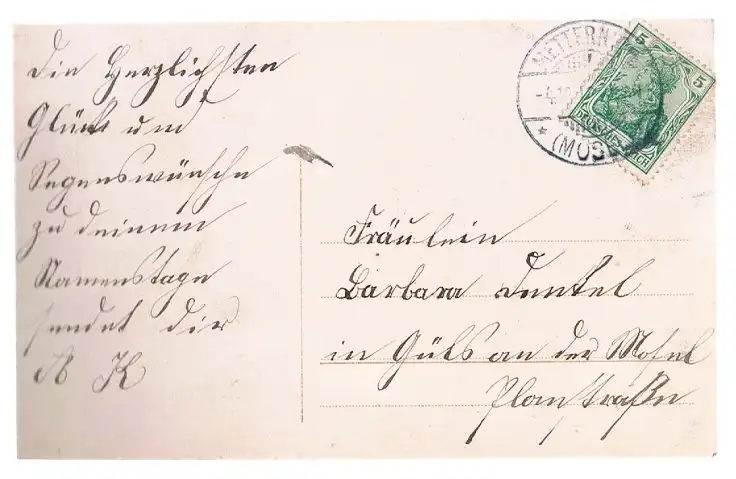 Die Herzlichsten
Glück und
Segenswünsche
zu deinem
Namenstage
sendet dir
A K
METTERN
(MOS
5
5
DEUTSCHES REICH
Fräulein
Barbara
in Güls an der Mosel
Planstraße